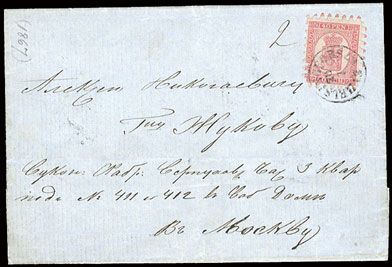 (1867)
2
40 PEN
Николаевичу
Гну Жукову
Сукон: Фабр: Серпуховс. Час. 3 Квар
подъ № 411 и 412 въ Соб. Домѣ
Въ Москву